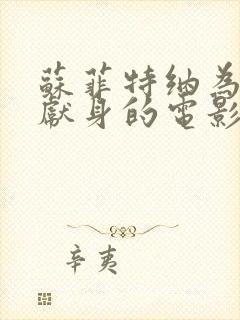 蘇菲特納為
獻身的電影
辛夷